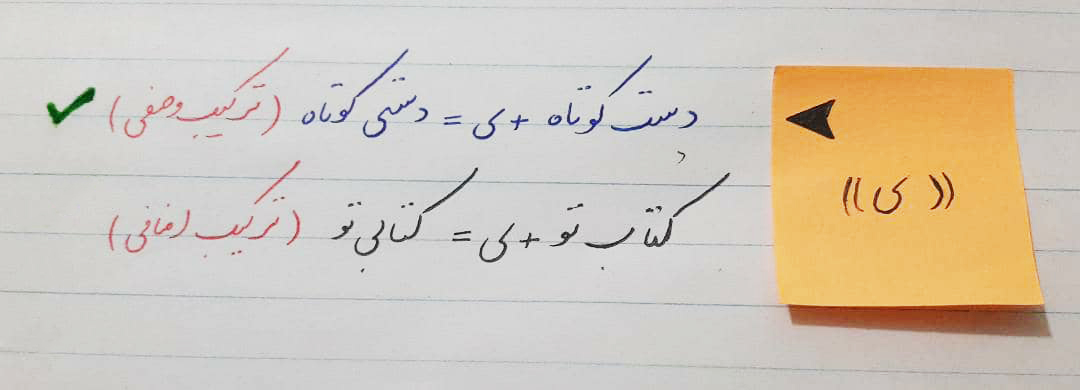 دست کوتاه + ی = دستی کوتاه (ترکیب وصفی)
کتاب تو + ی = کتابی تو (ترکیب اضافی)
((ی))